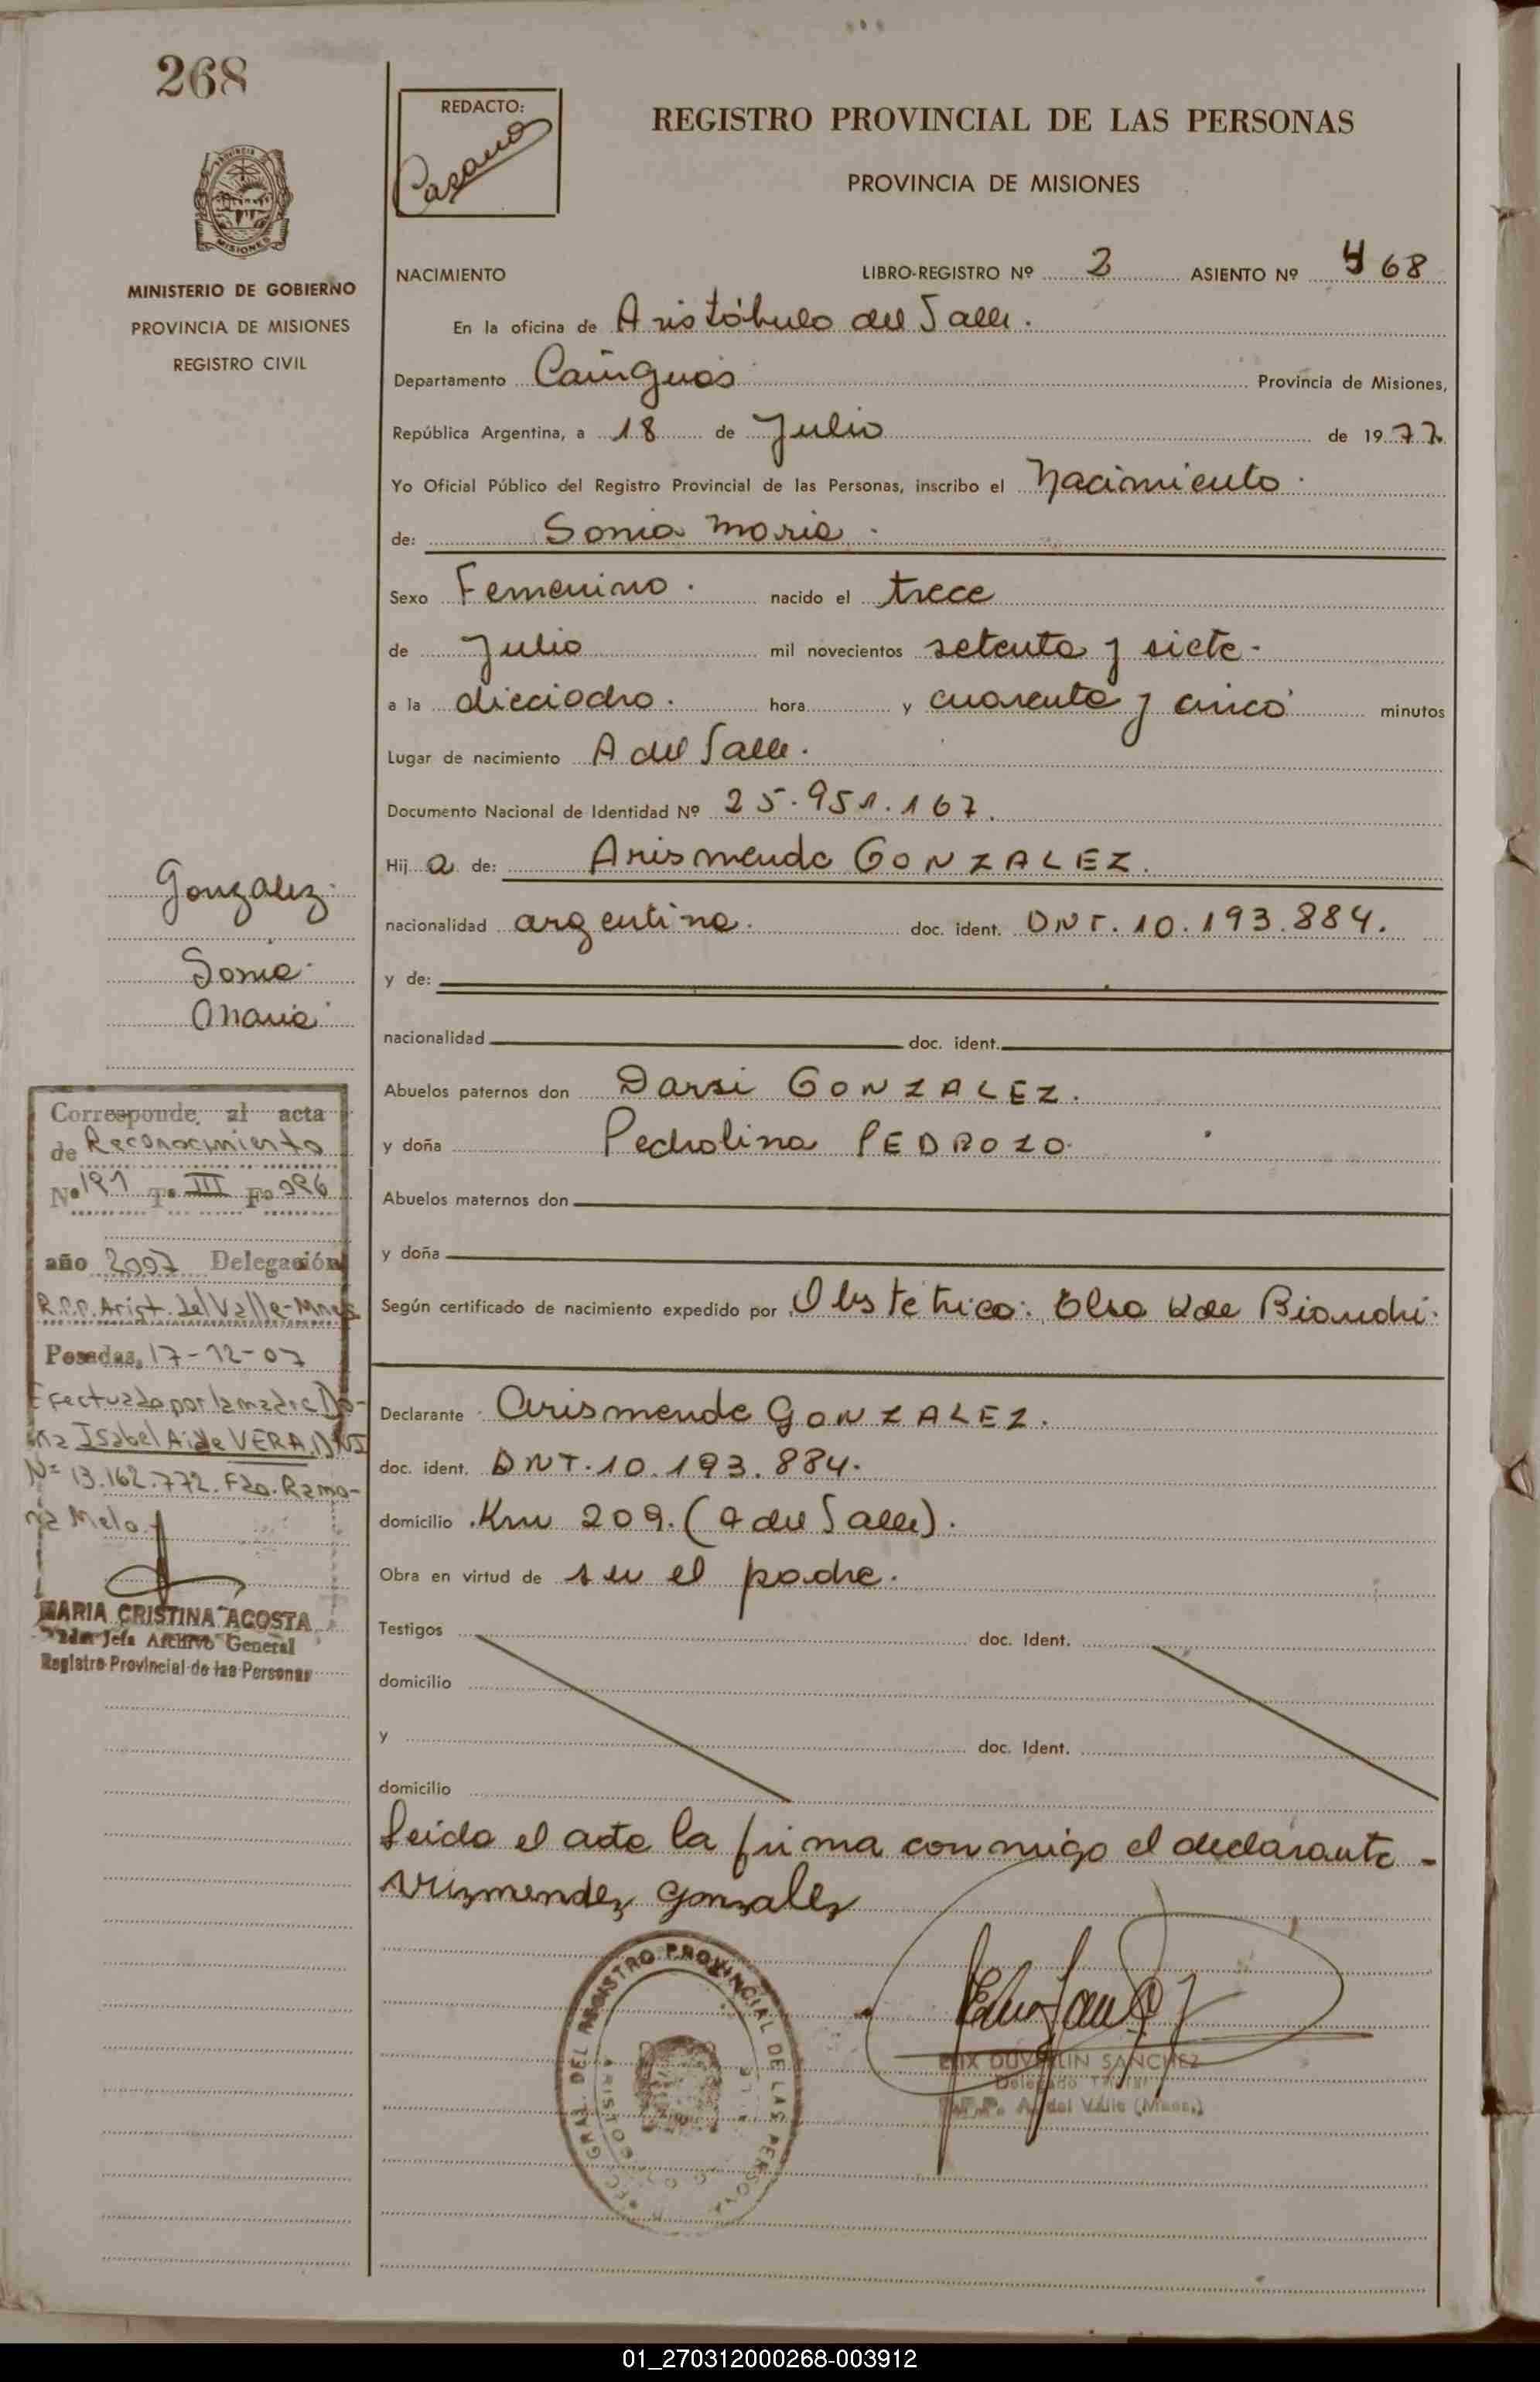 268
REDACTO:
Casano
REGISTRO PROVINCIAL DE LAS PERSONAS
PROVINCIA DE MISIONES
PROVINCIA DE
MISIONES
MINISTERIO DE GOBIERNO
PROVINCIA DE MISIONES
REGISTRO CIVIL
NACIMIENTO
LIBRO-REGISTRO Nº 2 ASIENTO Nº 468
En la oficina de Aristóbulo del Valle.
Departamento Cainguás Provincia de Misiones,
República Argentina, a 18 de Julio de 1977
Yo Oficial Público del Registro Provincial de las Personas, inscribo el Nacimiento
de: Sonia Maria
Sexo Femenino. nacido el trece
de Julio mil novecientos setenta y siete-
a la dieciocho. hora y cuarenta y cinco minutos
Lugar de nacimiento A del Valle.
Documento Nacional de Identidad Nº 25.951.167.
Hij a de: Arismende GONZALEZ.
nacionalidad argentina. doc. ident. DNI. 10.193.884.
y de:
nacionalidad doc. ident.
Abuelos paternos don Darsi GONZALEZ.
y doña Pedrolina PEDROZO.
Abuelos maternos don
y doña
Según certificado de nacimiento expedido por Obstetrica: Elsa V de Bianchi.
Declarante Arismende GONZALEZ.
doc. ident. DNI. 10.193.884.
domicilio Km 209. (A del Valle).
Obra en virtud de ser el padre.
Testigos doc. Ident.
domicilio
y doc. Ident.
domicilio
Leida el acta la firma conmigo el declarante-
Arizmendez Gonzalez
Gonzalez
Sonia
Maria
Corresponde al acta
de Reconocimiento
Nº 191 Tº III Fº 096
año 2007 Delegación
R.P.P. Arist. del Valle-Mnes
Posadas, 17-12-07
Efectuada por la madre Do-
ña Isabel Aide VERA, DNI
Nº 13.162.772. Fdo. Ramo-
na Melo
MARIA CRISTINA ACOSTA
Jefa Archivo General
Registro Provincial de las Personas
GRAL. DEL REGISTRO PROVINCIAL DE LAS PERSONAS
DUVALIN SANCHEZ
Delegado Titular
A. del Valle (Mnes.)
01_270312000268-003912